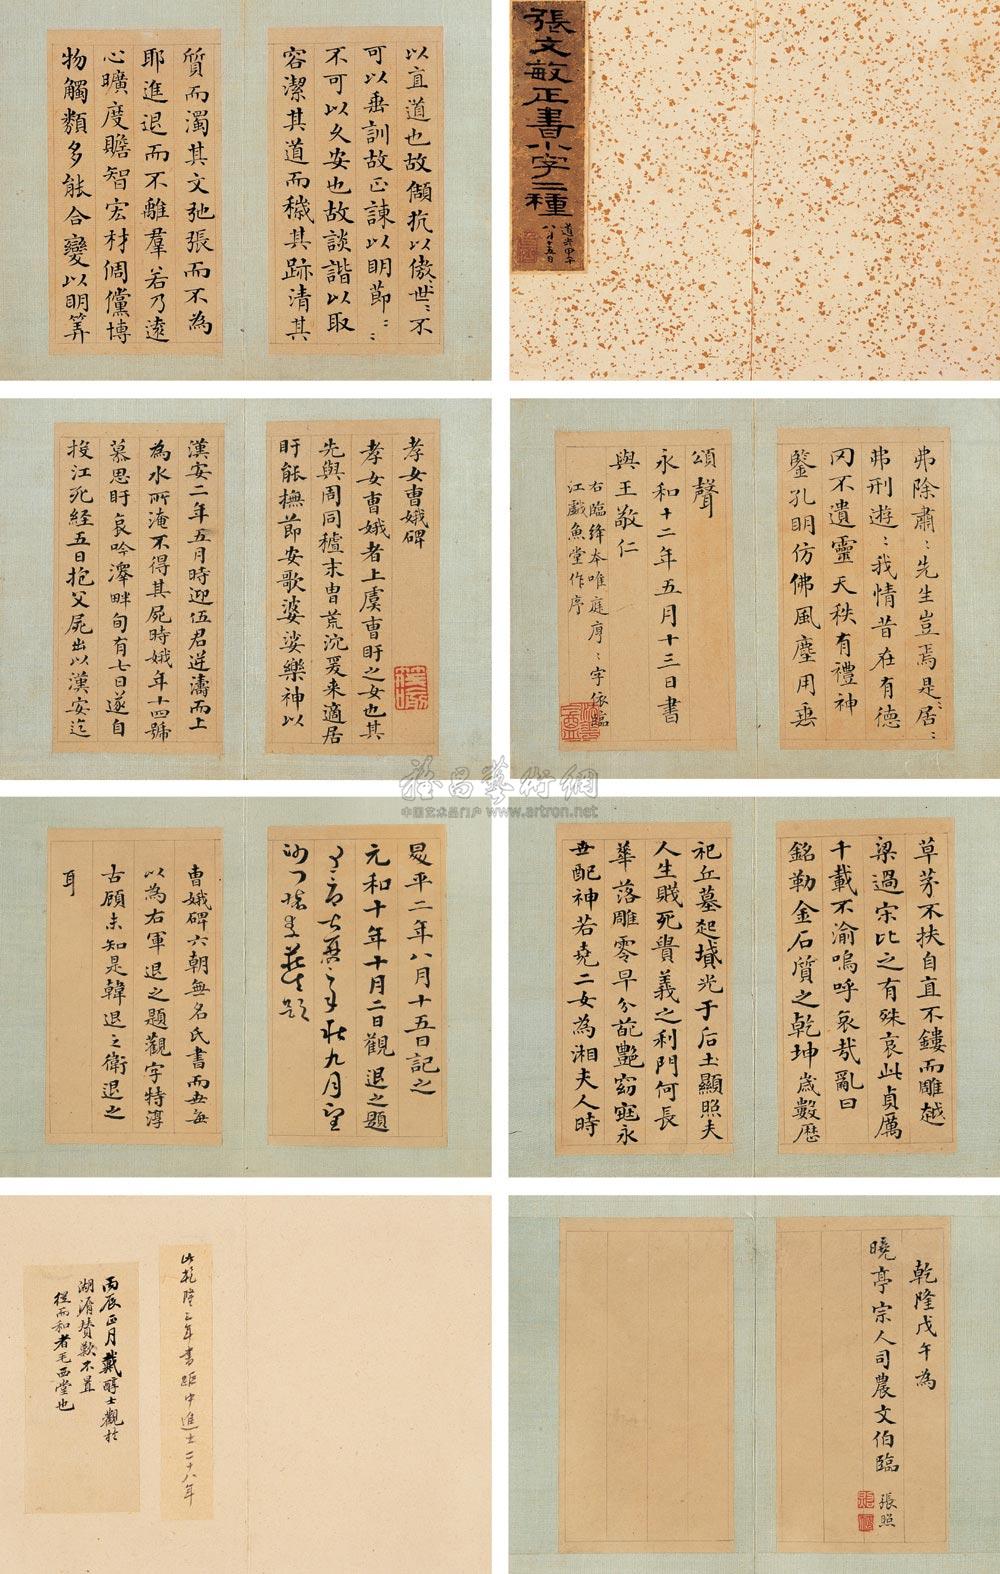 張文敏正書小字二種
道光甲午
八月十五日
以直道也故傾抗以傲世〻不
可以垂訓故正諫以明節〻〻
不可以久安也故談諧以取
容潔其道而穢其跡清其
質而濁其文弛張而不為
耶進退而不離羣若乃遠
心曠度贍智宏材倜儻博
物觸類多能合變以明筭
弗除肅〻先生豈焉是居〻〻
弗刑遊〻我情昔在有德
罔不遺靈天秩有禮神
鑒孔明仿佛風塵用垂
頌聲
永和十二年五月十三日書
與王敬仁
右臨絳本唯庭序〻字依臨
江戲魚堂作序
孝女曹娥碑
孝女曹娥者上虞曹盱之女也其
先與周同櫨末冑荒沉爰来適居
盱能撫節安歌婆娑樂神以
漢安二年五月時迎伍君逆濤而上
為水所淹不得其屍時娥年十四號
慕思盱哀吟澤畔旬有七日遂自
投江死経五日抱父屍出以漢安迄
草茅不扶自直不鏤而雕越
梁過宋比之有殊哀此貞厲
千載不渝嗚呼哀哉亂曰
銘勒金石質之乾坤歲數歷
祀丘墓起墳光于后土顯照夫
人生賤死貴義之利門何長
華落雕零早分葩艷窈窕永
世配神若堯二女為湘夫人時
昇平二年八月十五日記之
元和十年十月二日觀退之題
九月望
題
曹娥碑六朝無名氏書而世每
以為右軍退之題觀字特淳
古顧未知是韓退之衛退之
耳
乾隆戊午為
曉亭宗人司農文伯臨
張照
此乾隆三年書距中進士二十八年
丙辰正月戴醇士觀於
湖湄贊歎不置
從而和者毛西堂也
雅昌藝術網
中国艺术品门户 www.artron.net